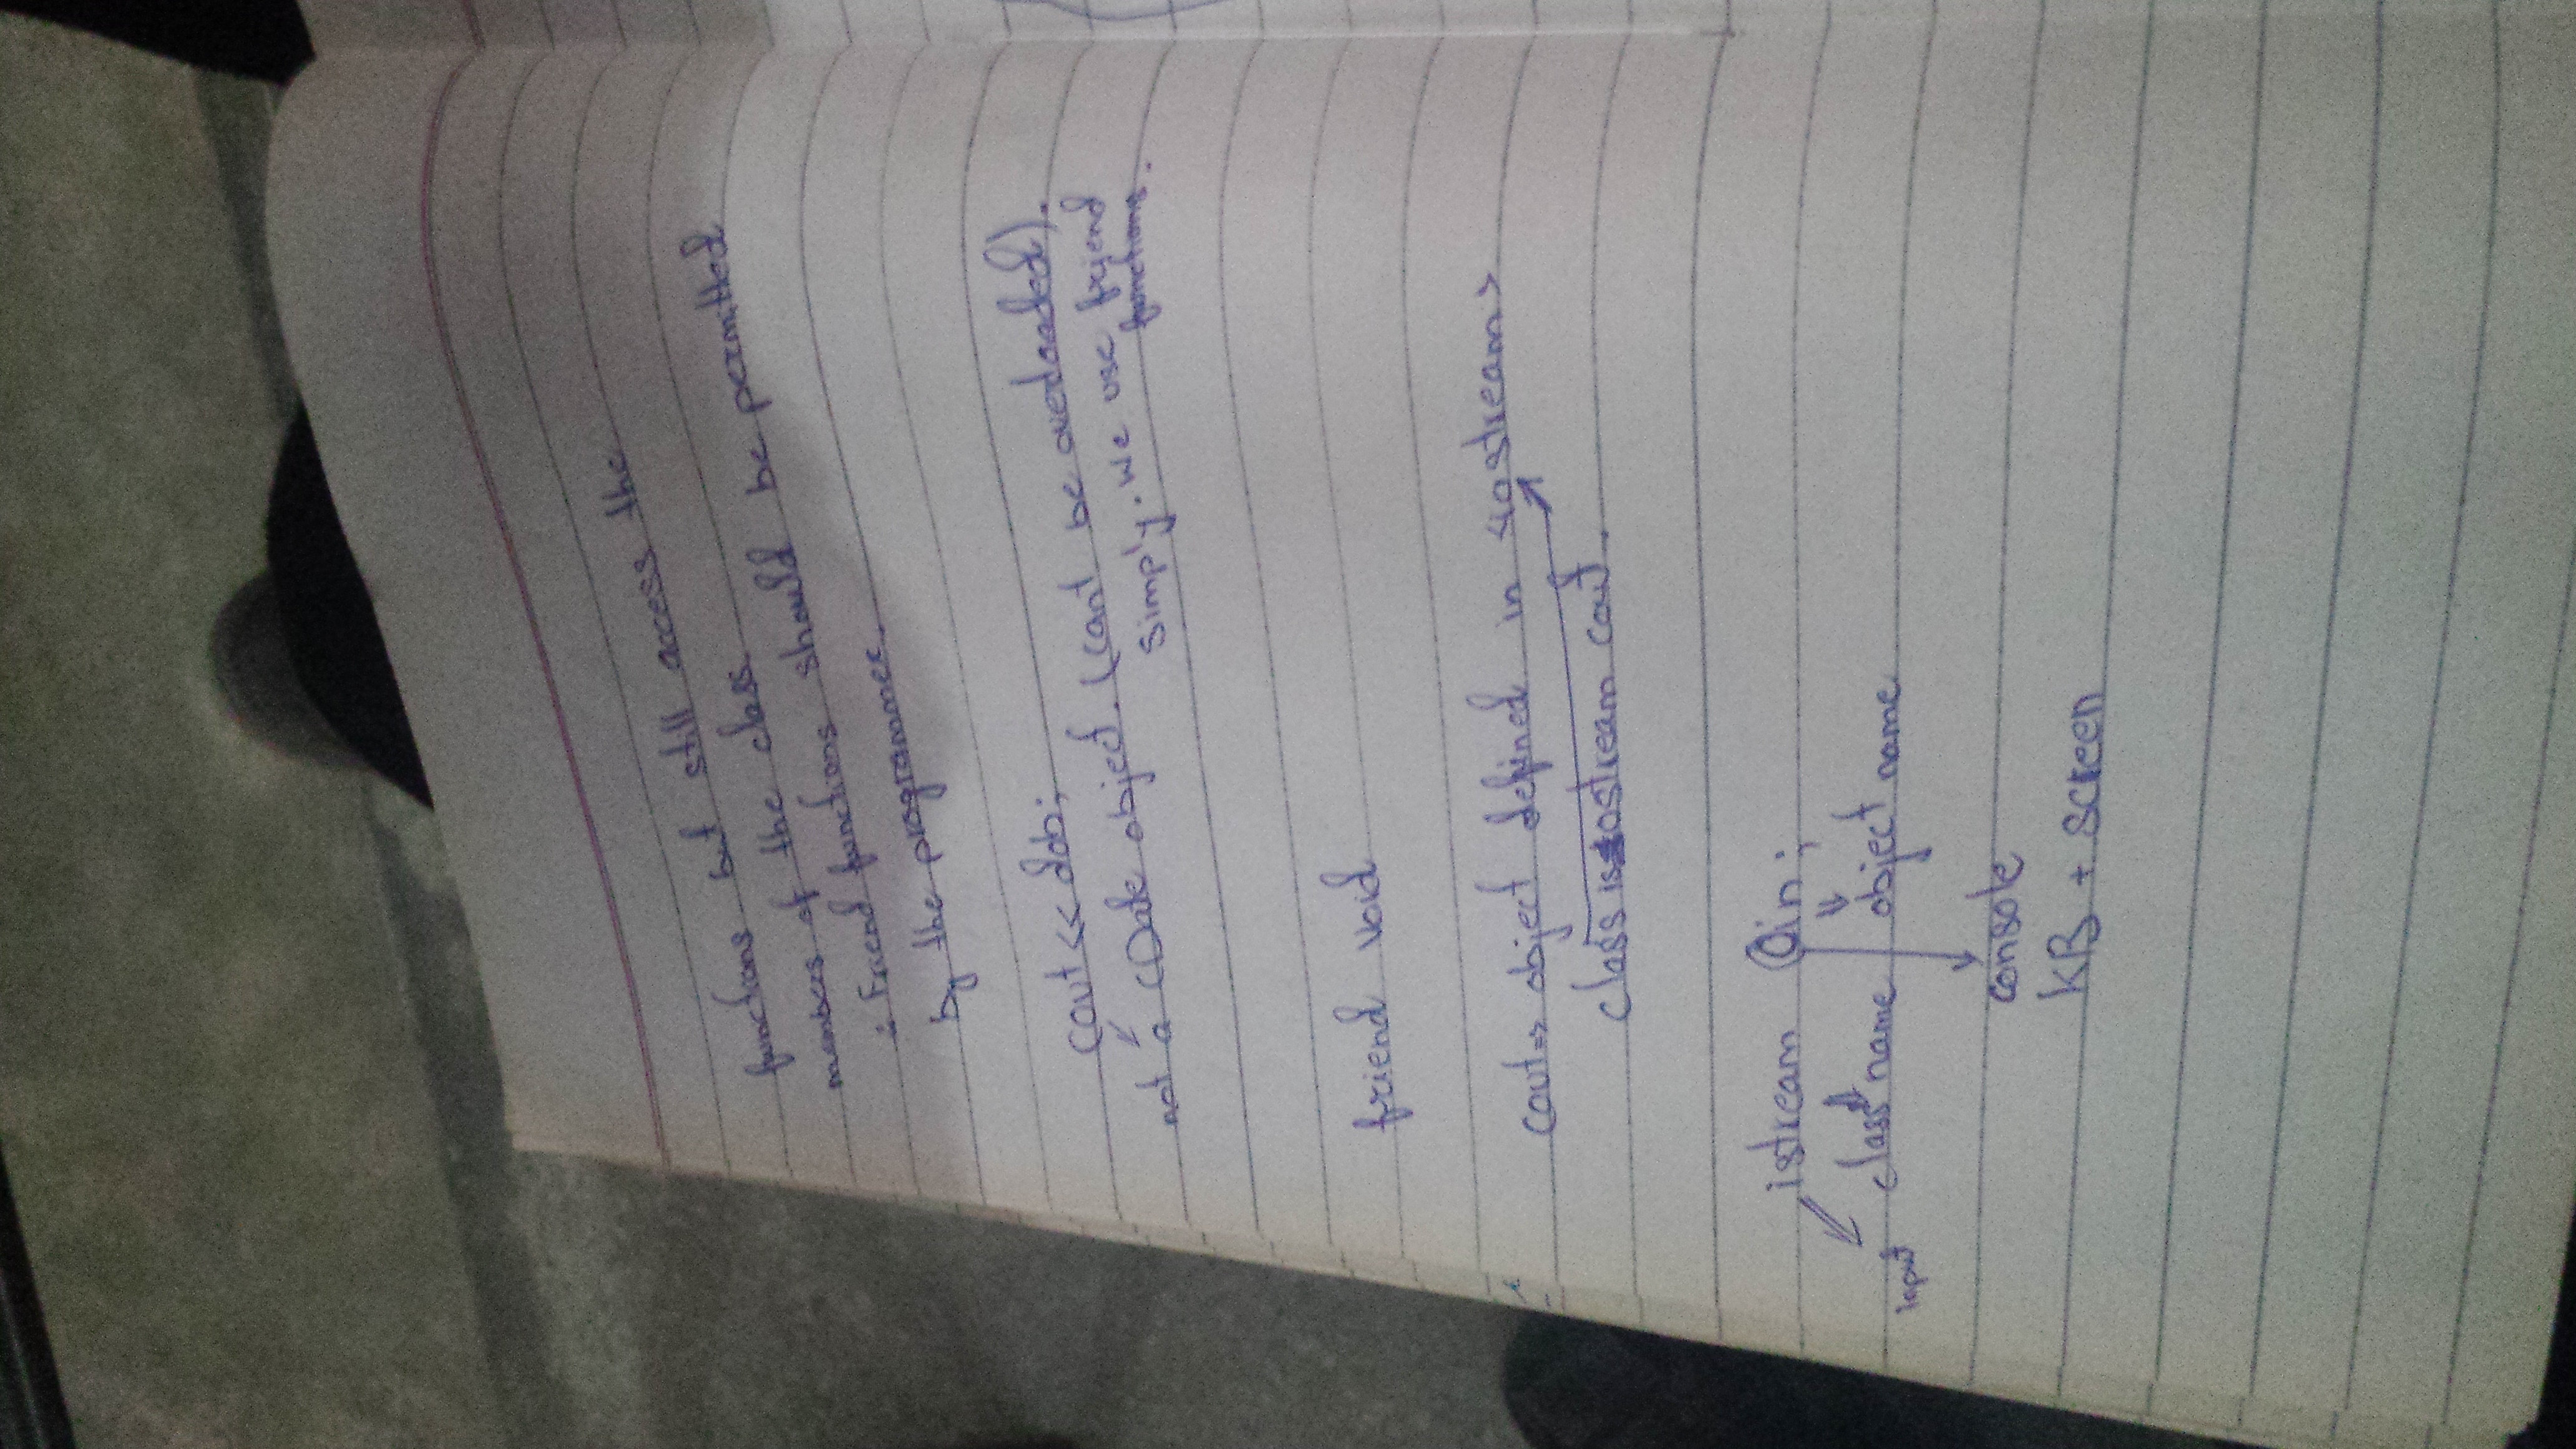 functions but still access the
members of the class.
∴ Friend functions should be permitted
by the programmer.
cout << dob;
not a CDate object. (cant be overloaded).
simply. We use friend
functions.
friend void
cout => object defined in <iostream>
class is ostream cout.
istream Cin;
input class name object name
console
KB + screen